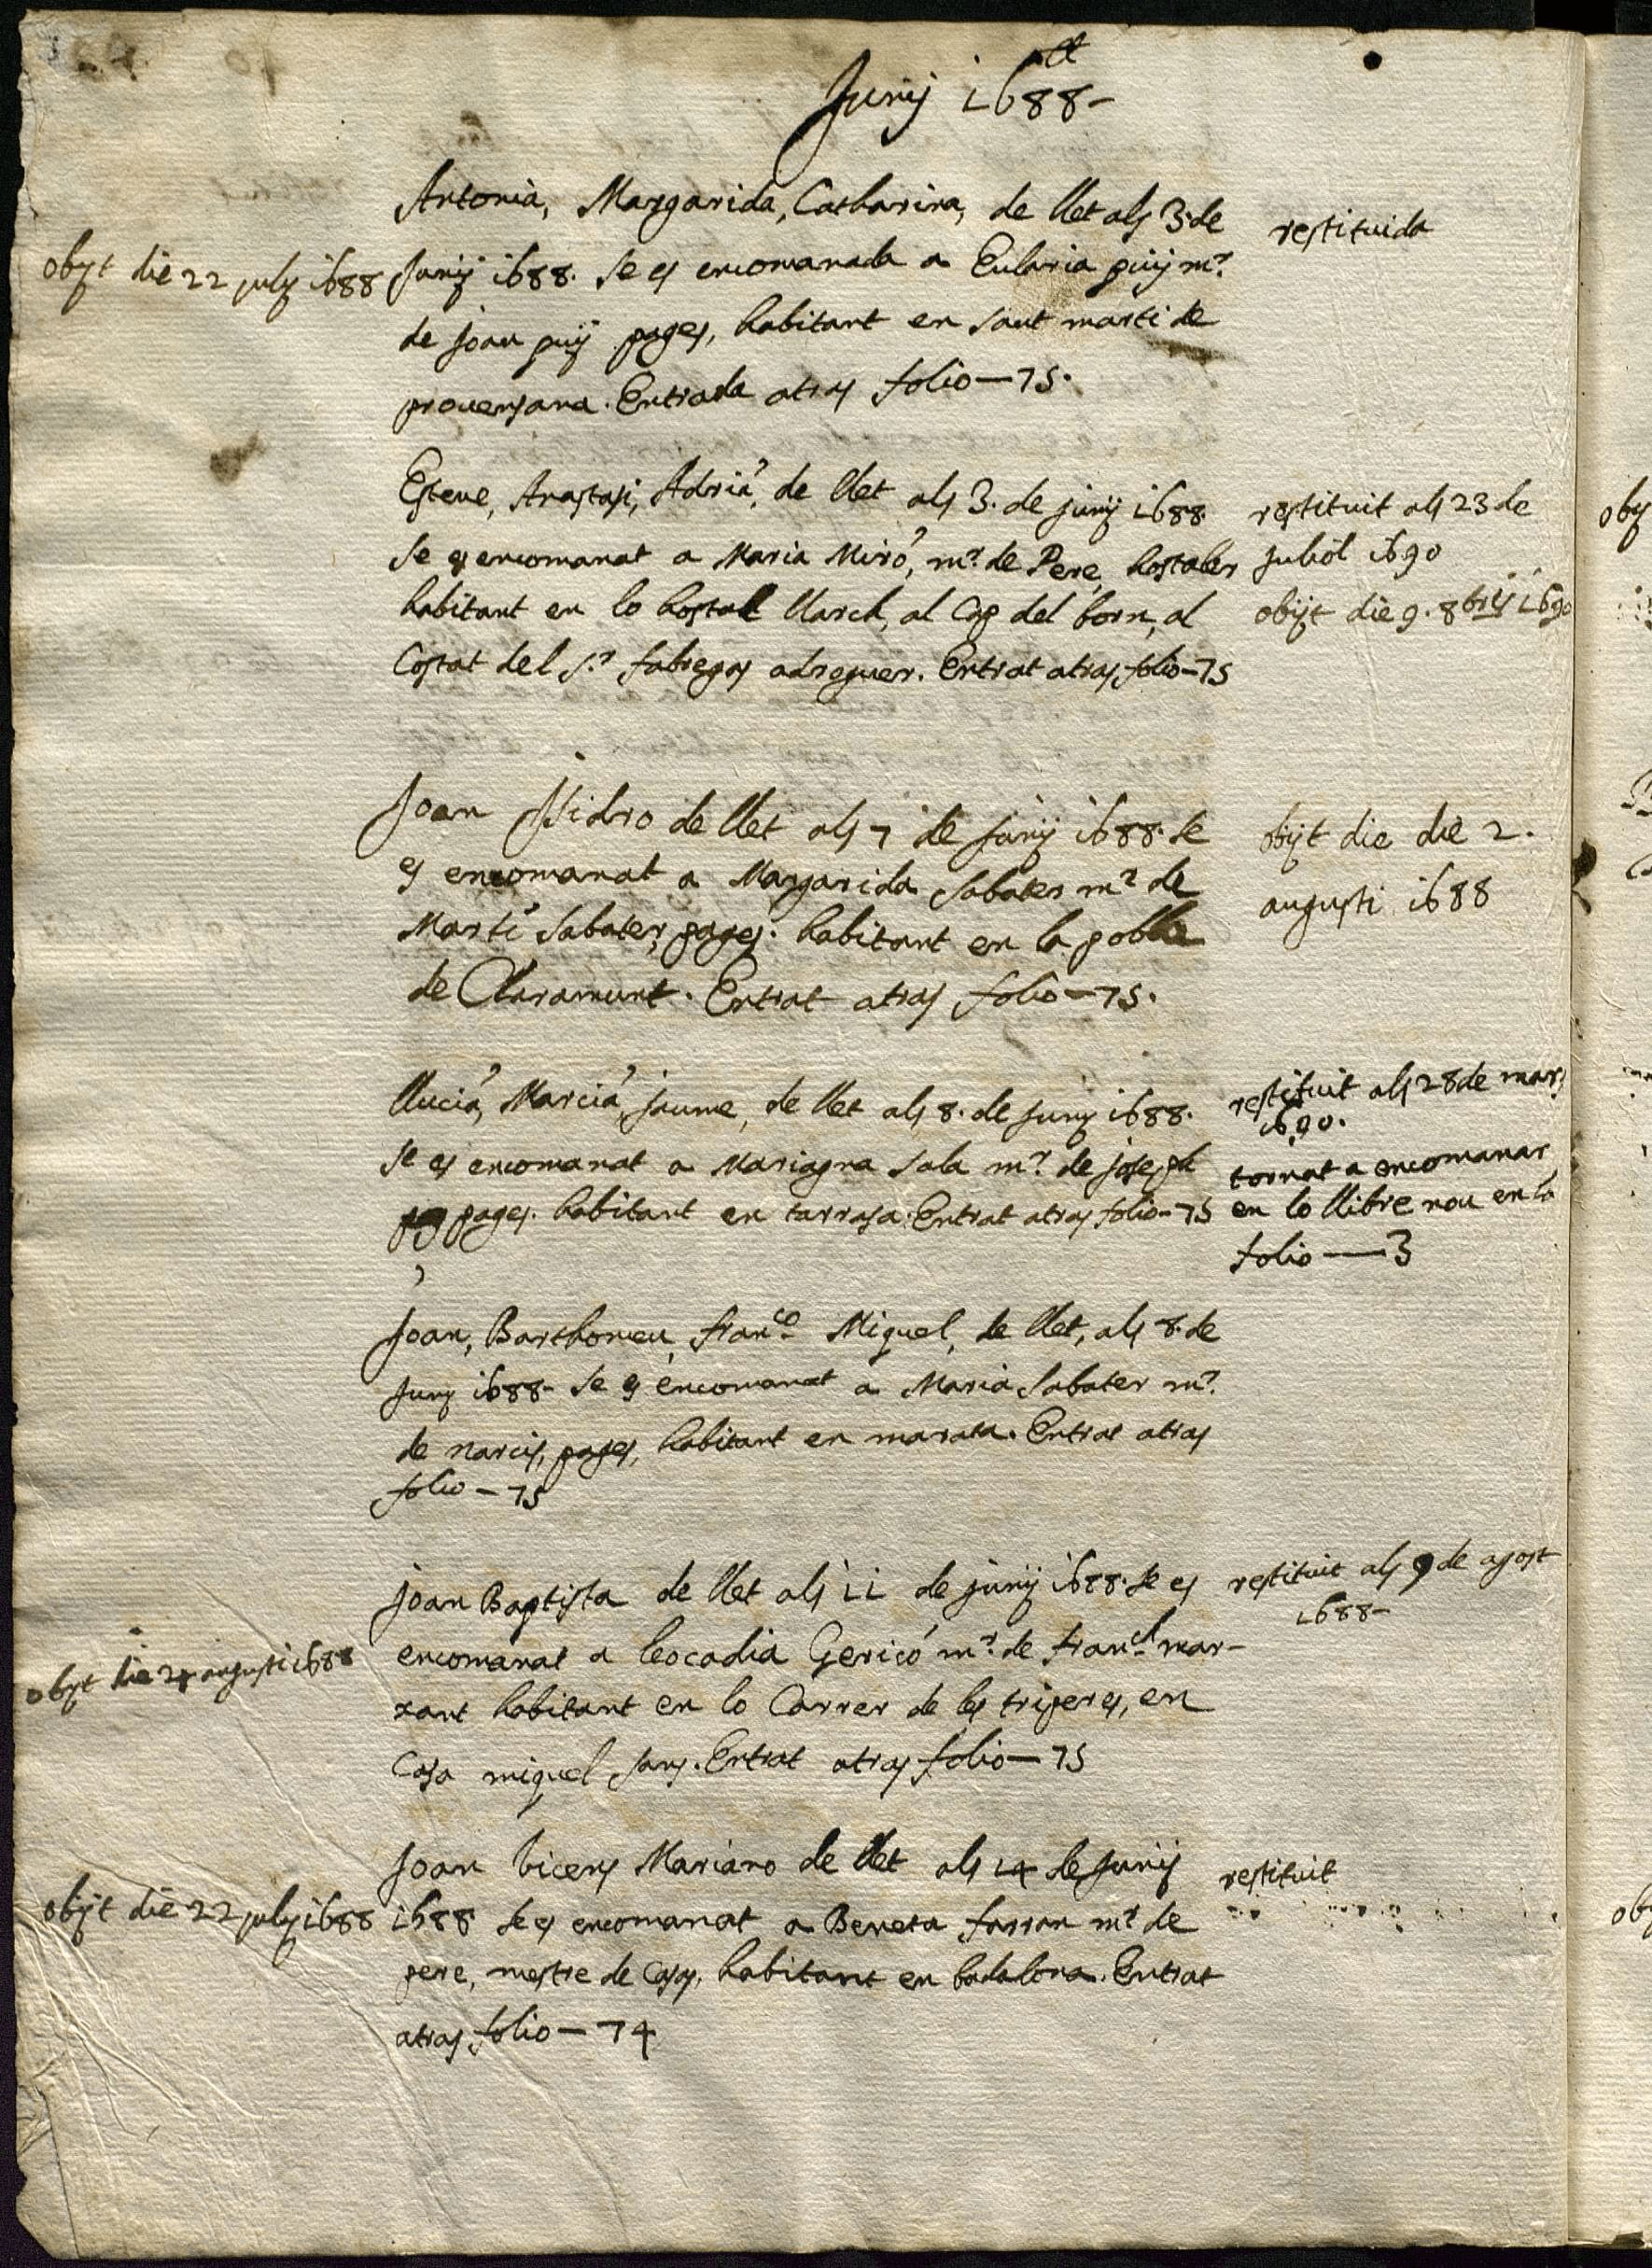 Junij 1688-
Antonia, Margarida, Catharina, de llet als 3. de
Junij 1688. se es encomanada a Eularia puij m.r
de joan puij pages, habitant en sant marti de
provensana. Entrada atras folio — 75.
obijt die 22 julij 1688
restituida
Esteve, Anastasi, Adrià, de llet als 3. de junij 1688.
se es encomanat a Maria Miró, m.r de Pere, hostaler
habitant en lo hostal llarch, al Cap del born, al
Costat del s.r fabregas adroguer. Entrat atras folio - 75
restituit als 23 de
Juliol 1690
obijt die 9. 8bris 1690
Joan Isidro de llet als 7 de Junij 1688. se
es encomanat a Margarida Sabater m.r de
Martí Sabater, pages. habitant en la pobla
de Claramunt. Entrat atras folio - 75.
obijt die die 2.
augusti 1688
llucià, Marcià, jaume, de llet als 8. de Juny 1688.
se es encomanat a Mariagna Sala m.r de joseph
pages. habitant en tarrasa. Entrat atras folio - 75
restituit als 28 de mars
1690.
tornat a encomanar
en lo llibre nou en lo
folio — 3
Joan, Barthomeu, fran.co Miquel, de llet, als 8. de
Juny 1688- se es encomanat a Maria Sabater m.r
de narcis, pages, habitant en marata. Entrat atras
folio - 75
joan Baptista de llet als 11 de junij 1688. se es
encomanat a leocadia Gericó m.r de fran.ch mar-
xant habitant en lo Carrer de les triperes, en
Casa miquel sans. Entrat atras folio — 75
obijt die 24 augusti 1688
restituit als 9 de agost
1688-
Joan Vicens Mariano de llet als 14 de Junij
1688 se es encomanat a Beneta farran m.r de
pere, mestre de Casas, habitant en badalona. Entrat
atras folio — 74
obijt die 22 julij 1688
restituit